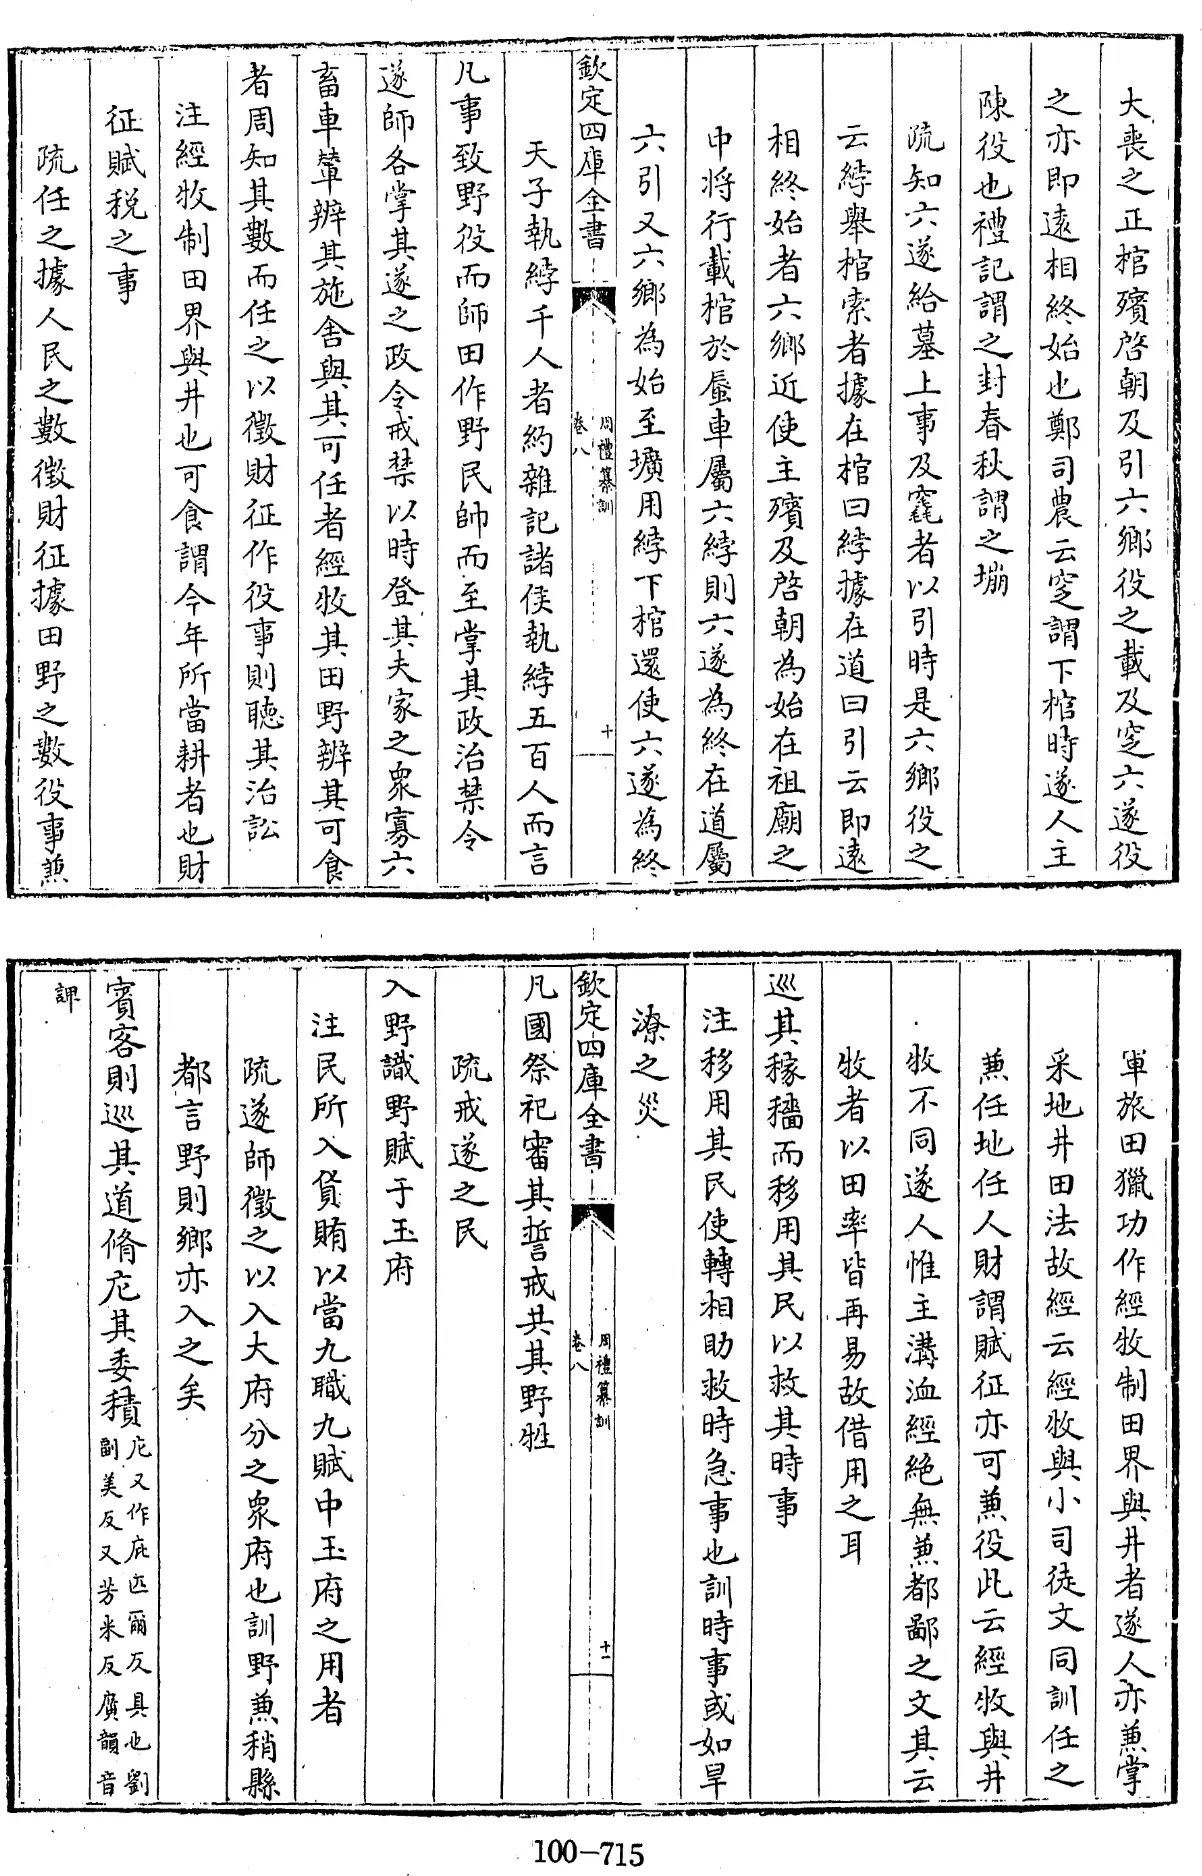 大喪之正棺殯啓朝及引六鄉役之載及窆六遂役
之亦即遠相終始也鄭司農云窆謂下棺時遂人主
陳役也禮記謂之封春秋謂之塴
疏知六遂給墓上事及窆者以引時是六鄉役之
云綍舉棺索者據在棺曰綍據在道曰引云即遠
相終始者六鄉近使主殯及啓朝為始在祖廟之
中將行載棺於蜃車屬六綍則六遂為終在道屬
六引又六鄉為始至壙用綍下棺還使六遂為終
欽定四庫全書
周禮纂訓
卷八
十
天子執綍千人者約雜記諸侯執綍五百人而言
凡事致野役而師田作野民帥而至掌其政治禁令
遂師各掌其遂之政令戒禁以時登其夫家之衆寡六
畜車輦辨其施舍與其可任者經牧其田野辨其可食
者周知其數而任之以徵財征作役事則聽其治訟
注經牧制田界與井也可食謂今年所當耕者也財
征賦税之事
疏任之據人民之數徵財征據田野之數役事兼
軍旅田獵功作經牧制田界與井者遂人亦兼掌
采地井田法故經云經牧與小司徒文同訓任之
兼任地任人財謂賦征亦可兼役此云經牧與井
牧不同遂人惟主溝洫經絶無兼都鄙之文其云
牧者以田率皆再易故借用之耳
巡其稼穡而移用其民以救其時事
注移用其民使轉相助救時急事也訓時事或如旱
潦之災
欽定四庫全書
周禮纂訓
卷八
十一
凡國祭祀審其誓戒共其野牲
疏戒遂之民
入野識野賦于玉府
注民所入貨賄以當九職九賦中玉府之用者
疏遂師徵之以入大府分之衆府也訓野兼稍縣
都言野則鄉亦入之矣
賓客則巡其道脩庀其委積庀又作庇匹爾反具也劉
副美反又芳米反廣韻音
諀
100-715